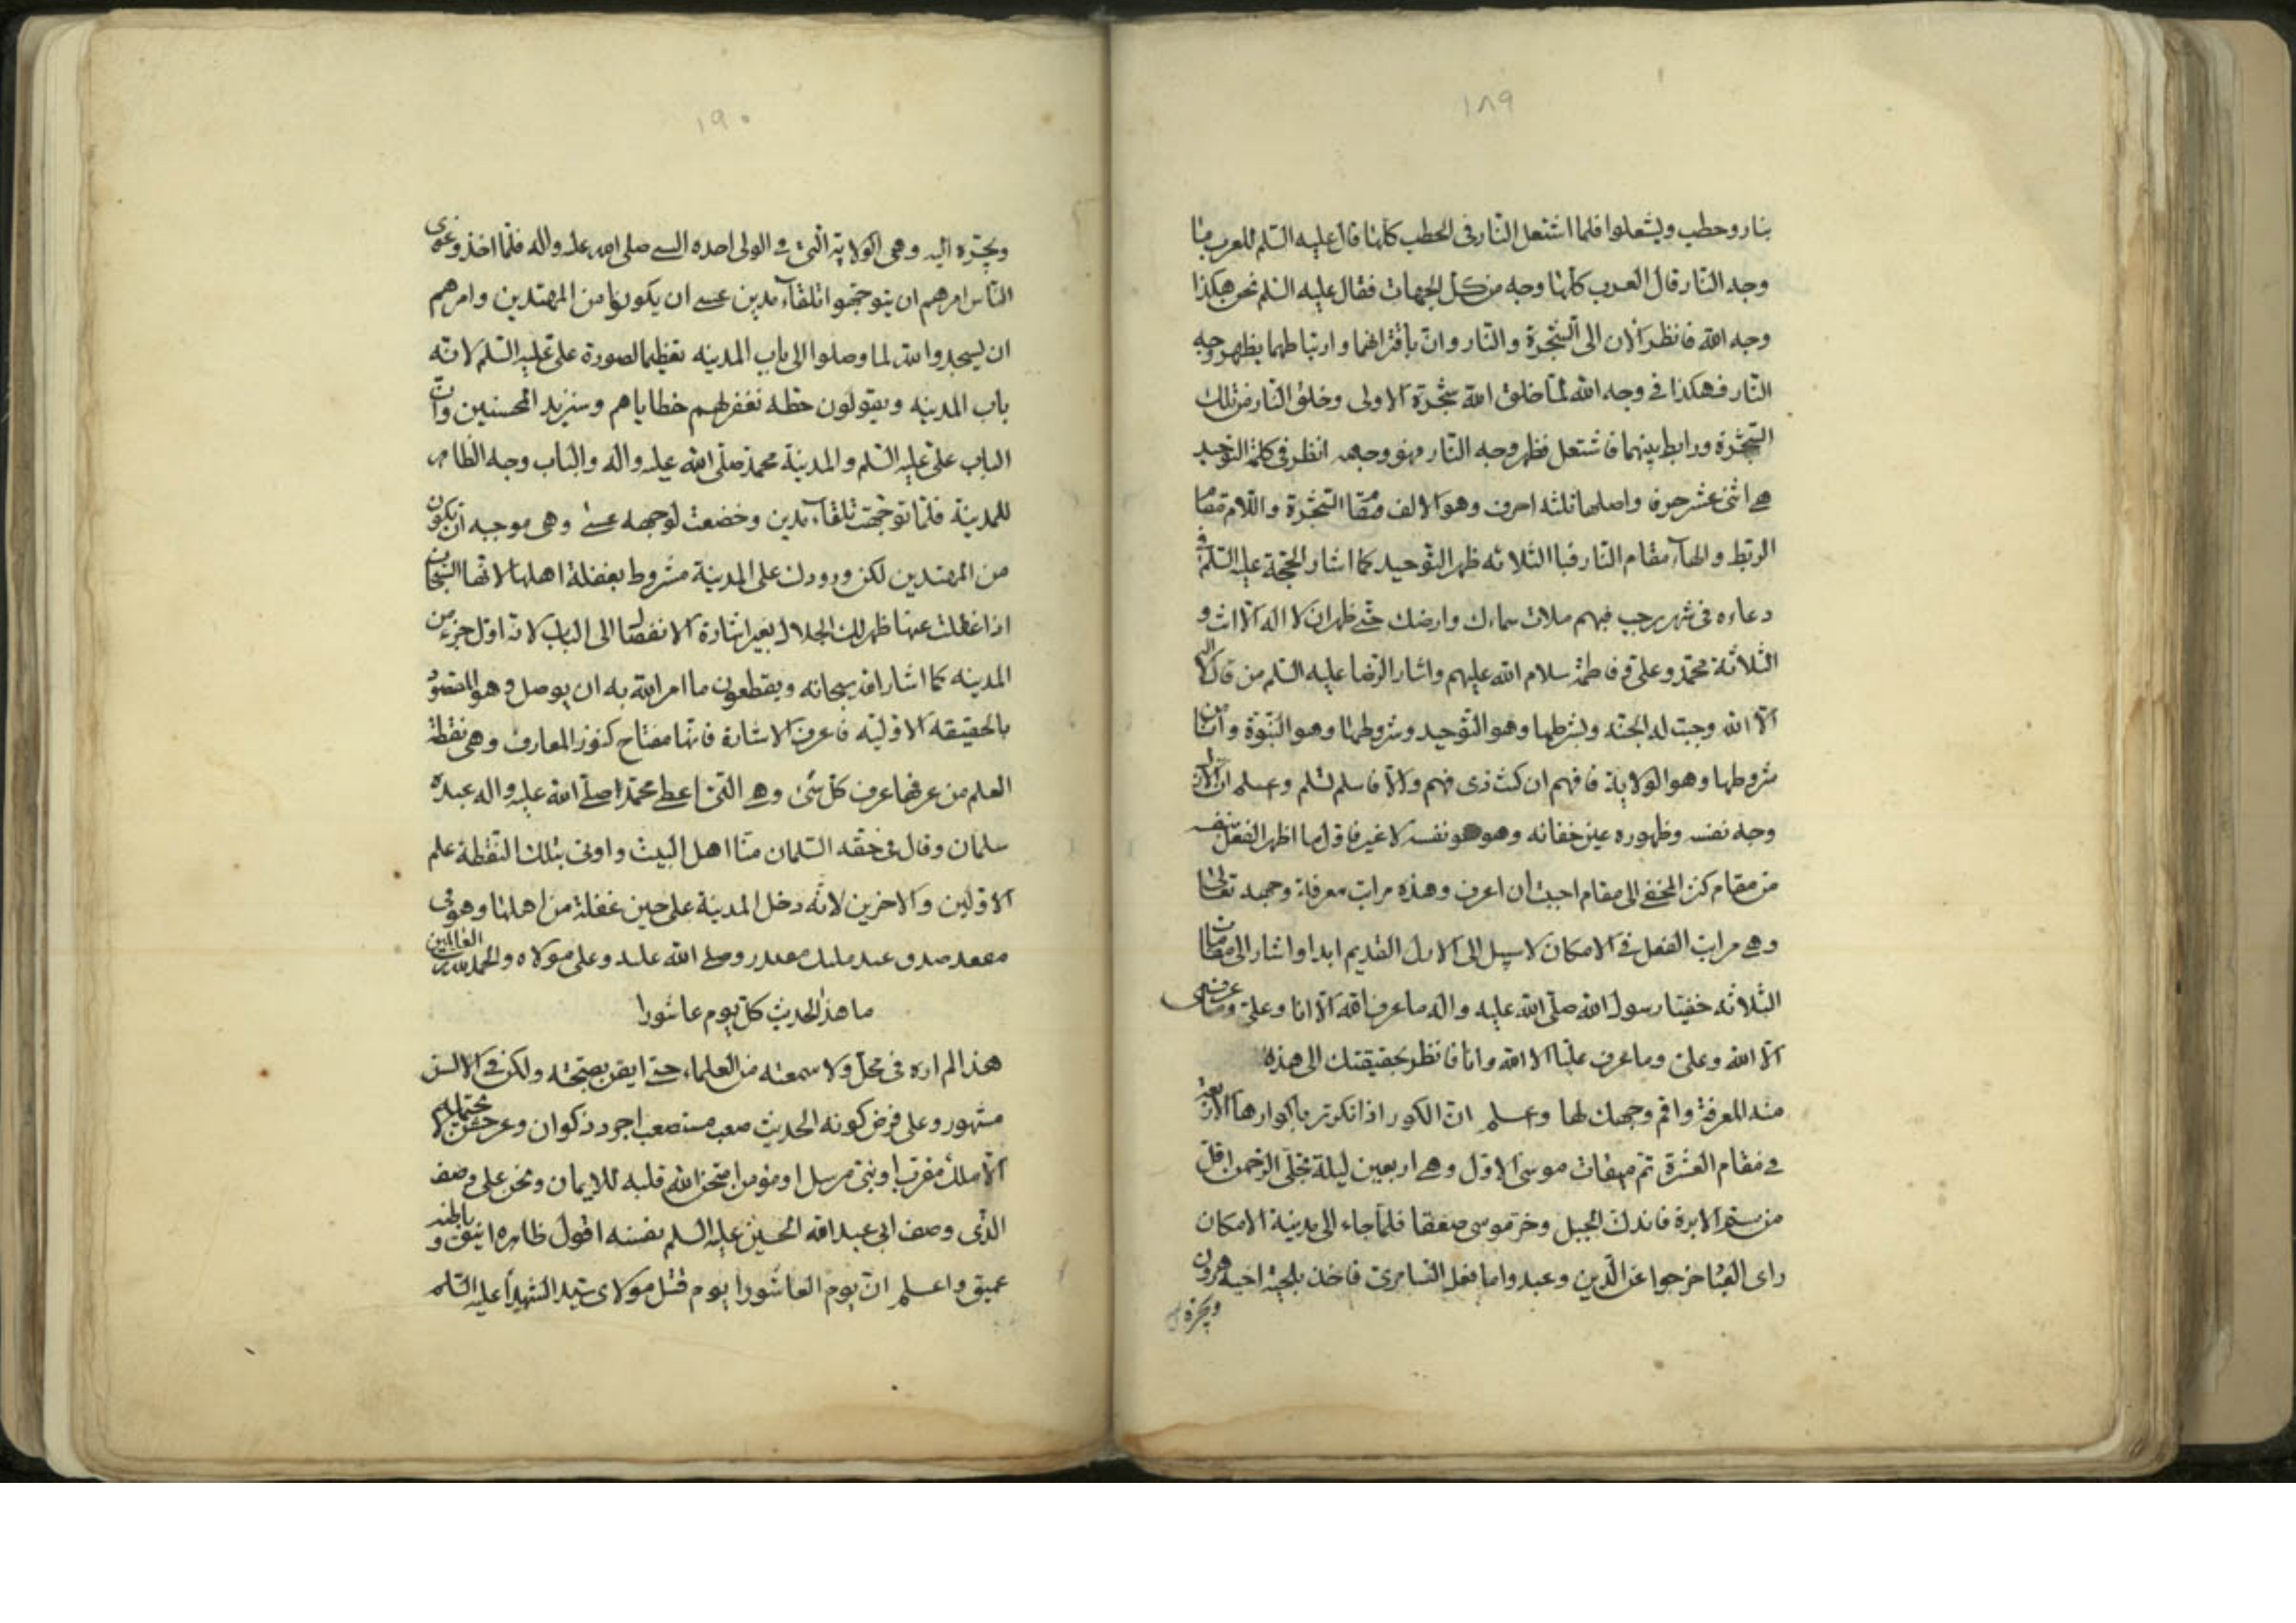 ١٨٩
بنار وحطب ويشعلوا فلما اشتعل النار فى الحطب كلها قال عليه السلم للعرب ما
وجه النار قال العرب كلها وجه من كل الجهات فقال عليه السلم نحن هكذا
وجه الله فانظر الان الى الشجرة والنار وان باقترانهما وارتباطهما يظهر وجه
النار فهكذا فى وجه الله لما خلق الله شجرة الاولى وخلق النار من تلك
الشجرة ورابط بينهما فاشتعل فظهر وجه النار وهو وجهه انظر فى كلمة التوحيد
هى اثنى عشر حرف واصلها ثلثه احرف وهو الالف مقام الشجرة واللام مقام
الربط والهاء مقام النار فبا الثلاثه ظهر التوحيد كما اشار الحجة عليه السلم فى
دعاءه فى شهر رجب فبهم ملات سماءك وارضك حتى ظهر ان لا اله الا انت و
الثلاثة محمد وعلى وفاطمة سلام الله عليهم واشار الرضا عليه السلم من قال لا اله
الا الله وجبت له الجنه وبشرطها وهو التوحيد وشروطها وهو النبوة وانا من
شروطها وهو الولاية فافهم ان كنت ذى فهم والا فاسلم تسلم وعلم ان الان
وجه نفسه وظهوره عين خفائه وهو هو نفسه لا غير فاول ما اظهر الفعل بنفسه
من مقام كنز المخفى الى مقام احببت ان اعرف وهذه مراتب معرفة وجهه تعالى
وهى مراتب الفعل فى الامكان لا سبيل الى الازل القديم ابدا واشار الى مقامات
الثلاثه خفيتا رسول الله صلى الله عليه واله ما عرف الله الا انا وعلى وما عرفنى
الا الله وعلى وما عرف عليا الا الله وانا فانظر بحقيقتك الى هذه
منه المعرفة واقم وجهك لها وعلم ان الكور اذا تكرتر باكوارها الاربعة
فى مقام العشرة تم ميقات موسى الاول وهى اربعين ليلة تجلى الرحمن اقل
من سم الابرة فاندك الجبل وخر موسى صعقا فلما جاء الى مدينة الامكان
راى القيتا خرجوا عن الدين وعبدوا ما فعل السامرى فاخذ بلحية اخيه هرون
ويجره
١٩٠
ويجره اليه وهى الولاية التى فى الولى احده النبى صلى الله عليه واله فلما اخذ وغوى
الناس امرهم ان يتوجهوا تلقاء مدين عسى ان يكونوا من المهتدين وامرهم
ان يسجدوا لله لما وصلوا الى باب المدينه تعظيما لصورة على عليه السلم لانه
باب المدينه ويقولون حطه نغفر لهم خطاياهم وسنزيد المحسنين وان
الباب على عليه السلم والمدينة محمد صلى الله عليه واله والباب وجه الظاهر
للمدينة فلما توجهت تلقاء مدين وخضعت لوجهه عسى وهى موجبه ان يكون
من المهتدين لكن ورودك على المدينة مشروط بغفلة اهلها لانها السبحات
اذا غفلت عنها ظهر لك الجلال بغير اشارة الانفصال الى الباب لانه اول جزء من
المدينه كما اشار الله سبحانه ويقطعون ما امر الله به ان يوصل وهو المقصود
بالحقيقه الاوليه فاعرف الاشارة فانها مفتاح كنوز المعارف وهى نقطة
العلم من عرفها عرف كل شئ وهى التى اعطى محمد صلى الله عليه واله عبده
سلمان وقال فى حقه السلمان منا اهل البيت واوتى بتلك النقطة علم
الاولين والاخرين لانه دخل المدينة على حين غفلة من اهلها وهو فى
مقعد صدق عند مليك مقتدر وصلى الله عليه وعلى مولاه والحمد لله رب العالمين
ما هذا الحديث كل يوم عاشورا
هذا لم اره فى محل ولا سمعته من العلماء حتى ايقن بصحته ولكن فى الالسن
مشهور وعلى فرض كونه الحديث صعب مستصعب اجرد ذكوان وعر لا يحتمله
الا ملك مقرب او نبى مرسل او مؤمن امتحن الله قلبه للايمان ونحن على وصف
الذى وصف ابى عبد الله الحسين عليه السلم نفسه اقول ظاهره انيق وباطنه
عميق واعلم ان يوم العاشورا يوم قتل مولاى سيد الشهداء عليه السلم